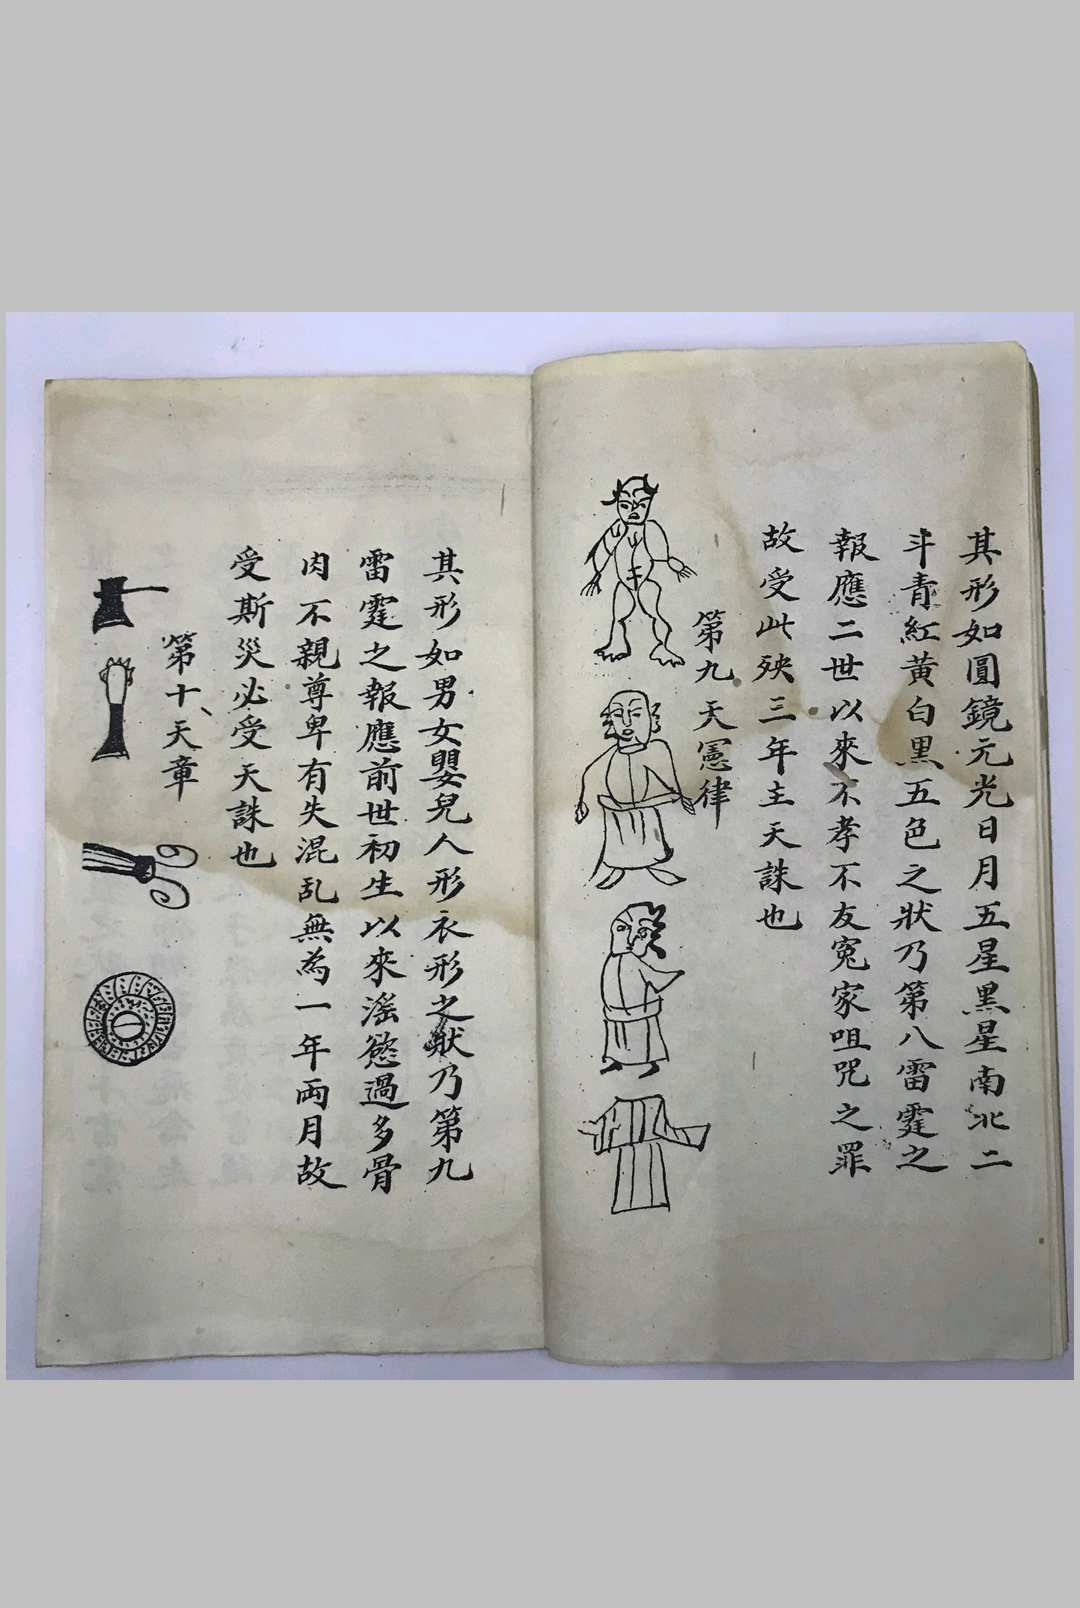 其形如圓鏡元光日月五星黑星南北二
斗青紅黃白黑五色之狀乃第八雷霆之
報應二世以來不孝不友冤家咀咒之罪
故受此殃三年主天誅也
第九天憲律
其形如男女嬰兒人形衣形之狀乃第九
雷霆之報應前世初生以來滛慾過多骨
肉不親尊卑有失混乱無為一年両月故
受斯災必受天誅也
第十天章